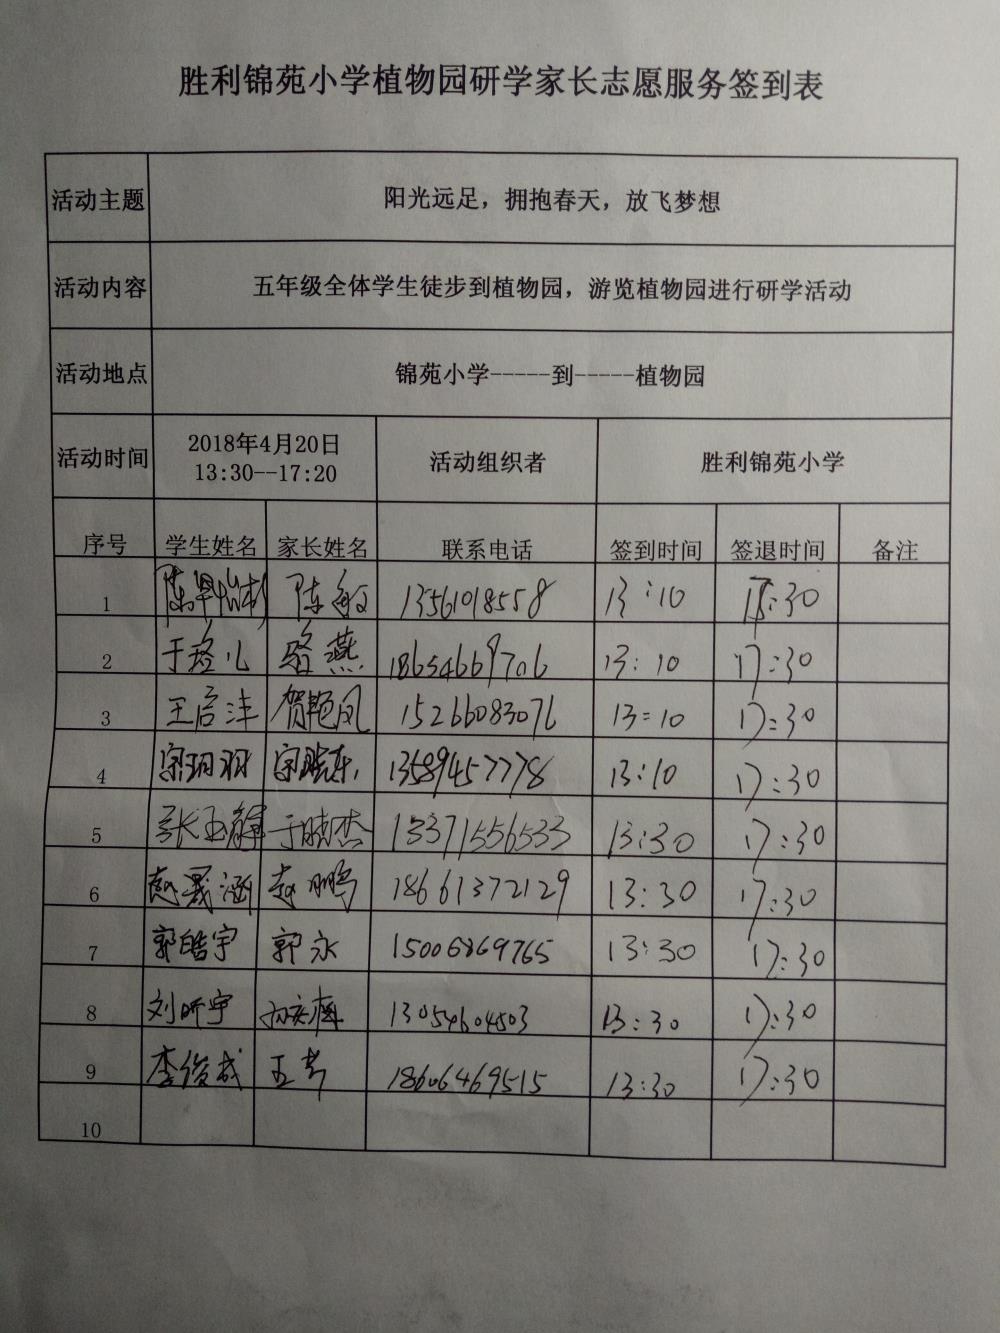 胜利锦苑小学植物园研学家长志愿服务签到表
活动主题 阳光远足，拥抱春天，放飞梦想
活动内容 五年级全体学生徒步到植物园，游览植物园进行研学活动
活动地点 锦苑小学-----到-----植物园
活动时间 2018年4月20日 13:30--17:20 活动组织者 胜利锦苑小学
序号 学生姓名 家长姓名 联系电话 签到时间 签退时间 备注
1 陈 敏 13561018558 13:10 :30
2 于珞儿 骆燕 18654669706 13:10 17:30
3 王启沣 贺艳凤 15266083076 13:10 17:30
4 宗玥羽 宗晓东 13589457778 13:10 17:30
5 张玉静 于晓杰 13371556533 13:30 17:30
6 赵晟涵 赵鹏 18661372129 13:30 17:30
7 郭皓宇 郭永 15006869765 13:30 17:30
8 刘昕宇 13054604503 13:30 17:30
9 李俊成 18606469515 13:30 17:30
10